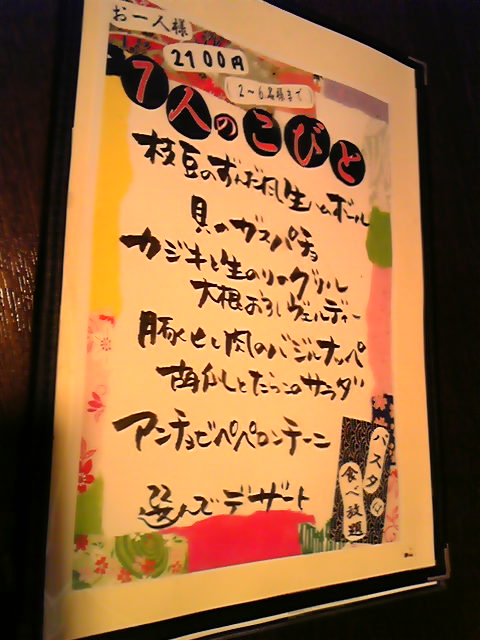 お一人様
2100円
2〜6名様まで
7人のこびと
枝豆のずんだ風生ハムボール
貝のガスパチョ
カジキと生のりのグリル
大根おろしヴェルディー
豚もも肉のバジルナッペ
南仏しとたらこのサラダ
アンチョビペペロンチーニ
選んでデザート
パスタ
食べ放題